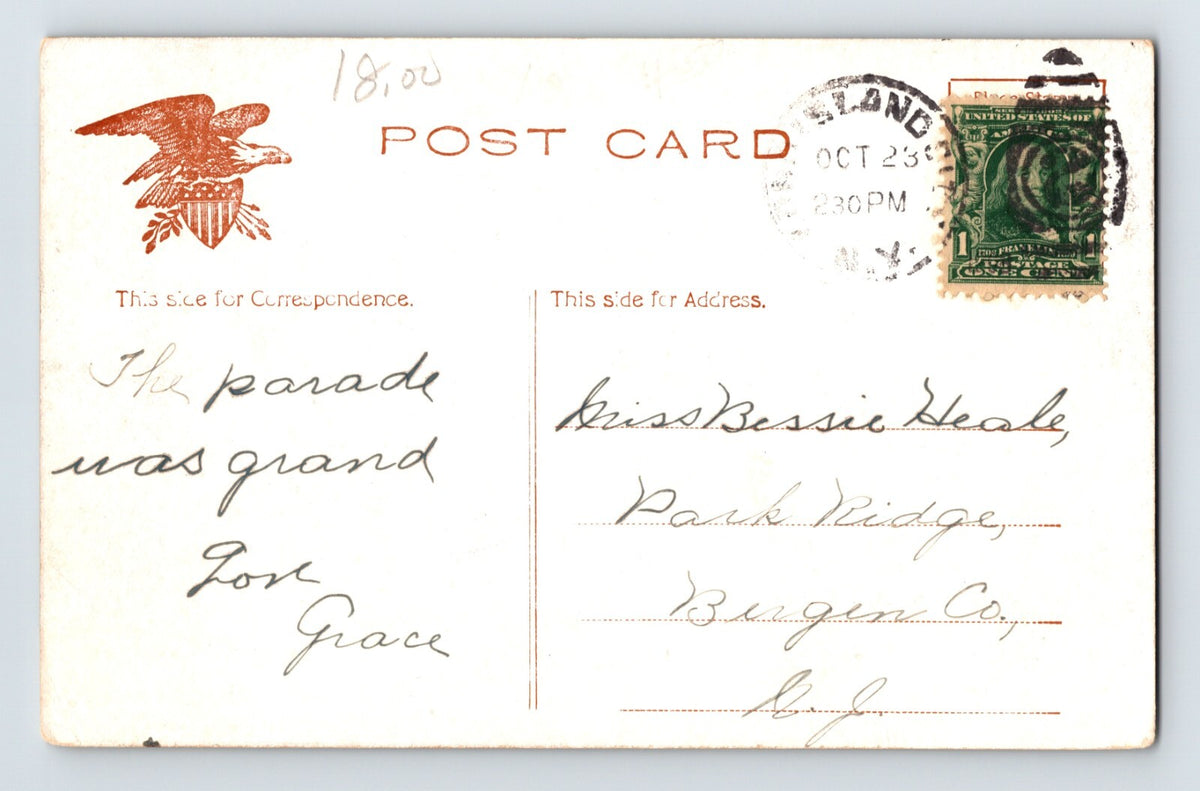 18.00
POST CARD
Place Stamp
ISLAND CITY
OCT 23
230PM
N.Y.
UNITED STATES OF
1 1
FRANKLIN
POSTAGE
ONE CENT
This side for Correspondence.
This side for Address.
The parade
was grand
Love
Grace
Miss Bessie Heale,
Park Ridge,
Bergen Co.,
N. J.